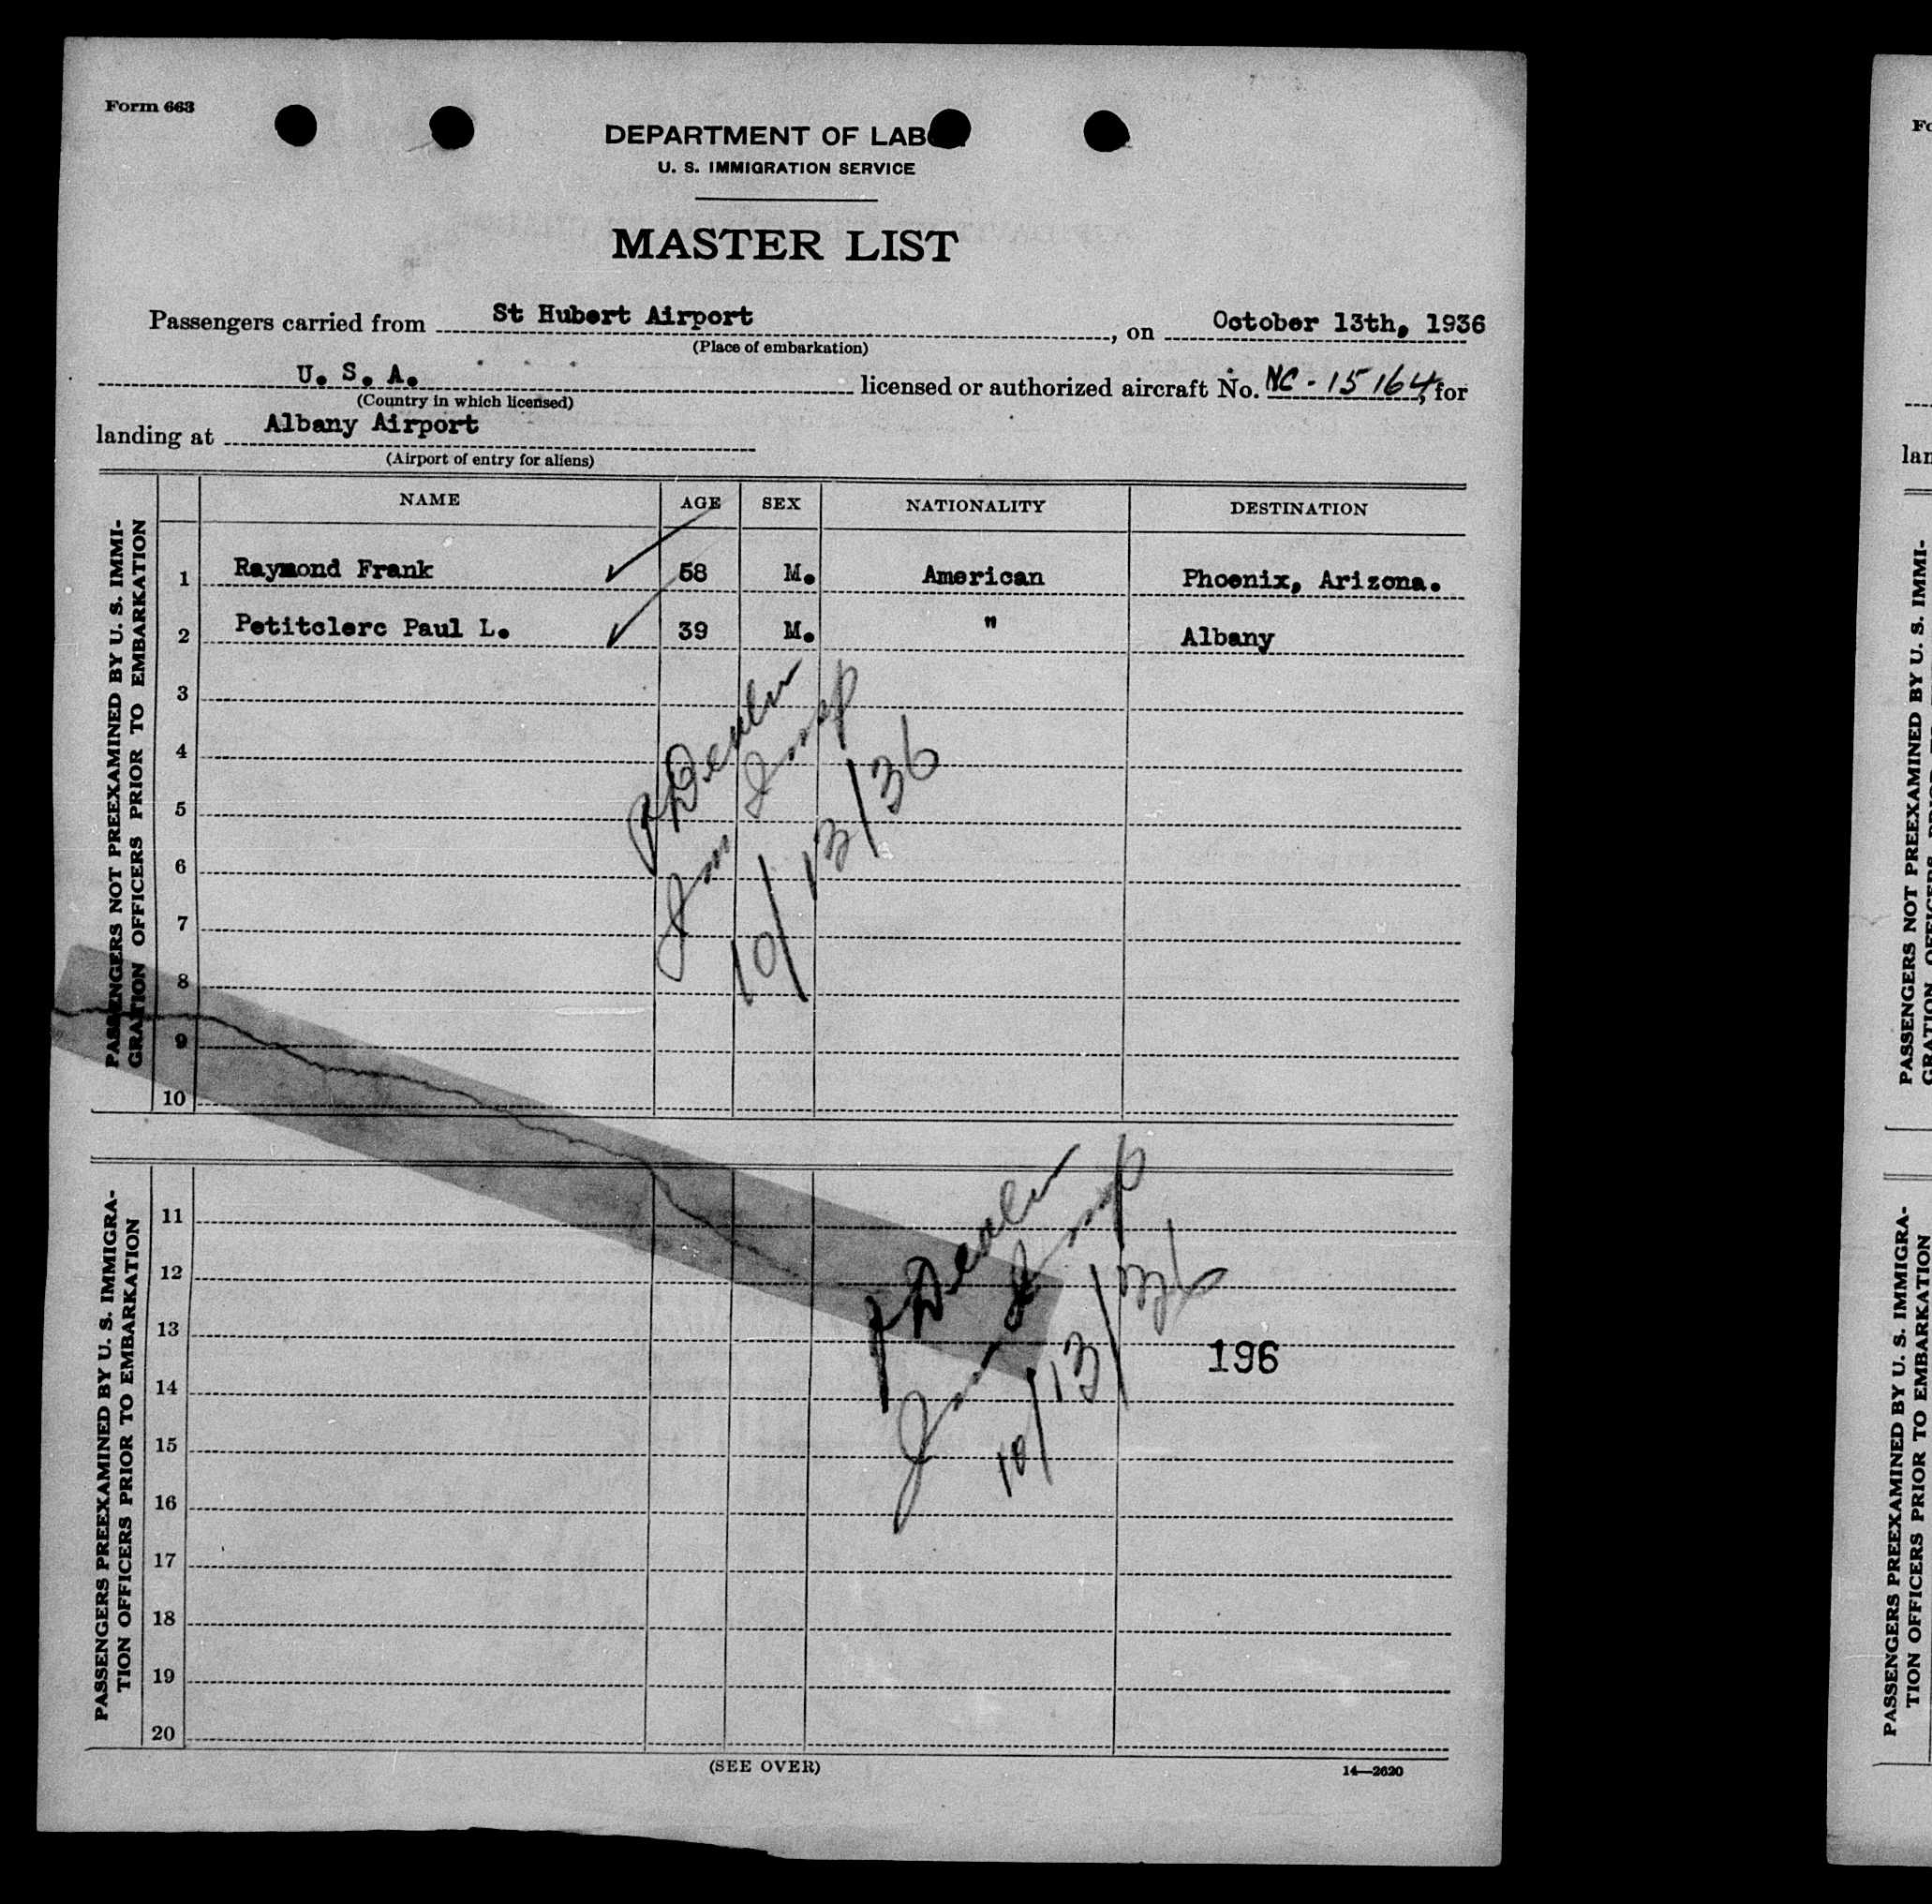 Form 663
DEPARTMENT OF LAB
U. S. IMMIGRATION SERVICE
MASTER LIST
Passengers carried from St Hubert Airport, on October 13th, 1936
(Place of embarkation)
U. S. A. licensed or authorized aircraft No. NC-15164, for
(Country in which licensed)
landing at Albany Airport
(Airport of entry for aliens)
NAME AGE SEX NATIONALITY DESTINATION
PASSENGERS NOT PREEXAMINED BY U. S. IMMI-
GRATION OFFICERS PRIOR TO EMBARKATION
1 Raymond Frank 58 M. American Phoenix, Arizona.
2 Petitclerc Paul L. 39 M. " Albany
3
4
5
6
7
8
9
10
Imm Insp
10/13/36
PASSENGERS PREEXAMINED BY U. S. IMMIGRA-
TION OFFICERS PRIOR TO EMBARKATION
11
12
13
14
15
16
17
18
19
20
Imm Insp
10/13/36
196
(SEE OVER)
14—2620
Fo
lan
PASSENGERS NOT PREEXAMINED BY U. S. IMMI-
PASSENGERS PREEXAMINED BY U. S. IMMIGRA-
TION OFFICERS PRIOR TO EMBARKATION